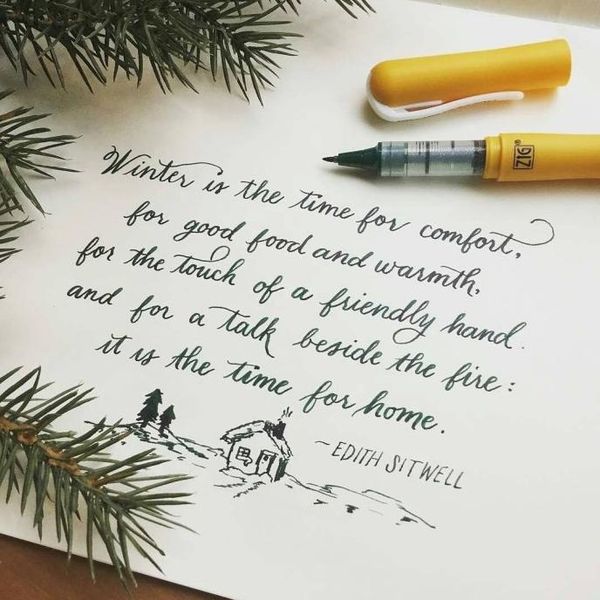 Winter is the time for comfort,
for good food and warmth,
for the touch of a friendly hand.
and for a talk beside the fire:
it is the time for home.
~EDITH SITWELL
ZIG®